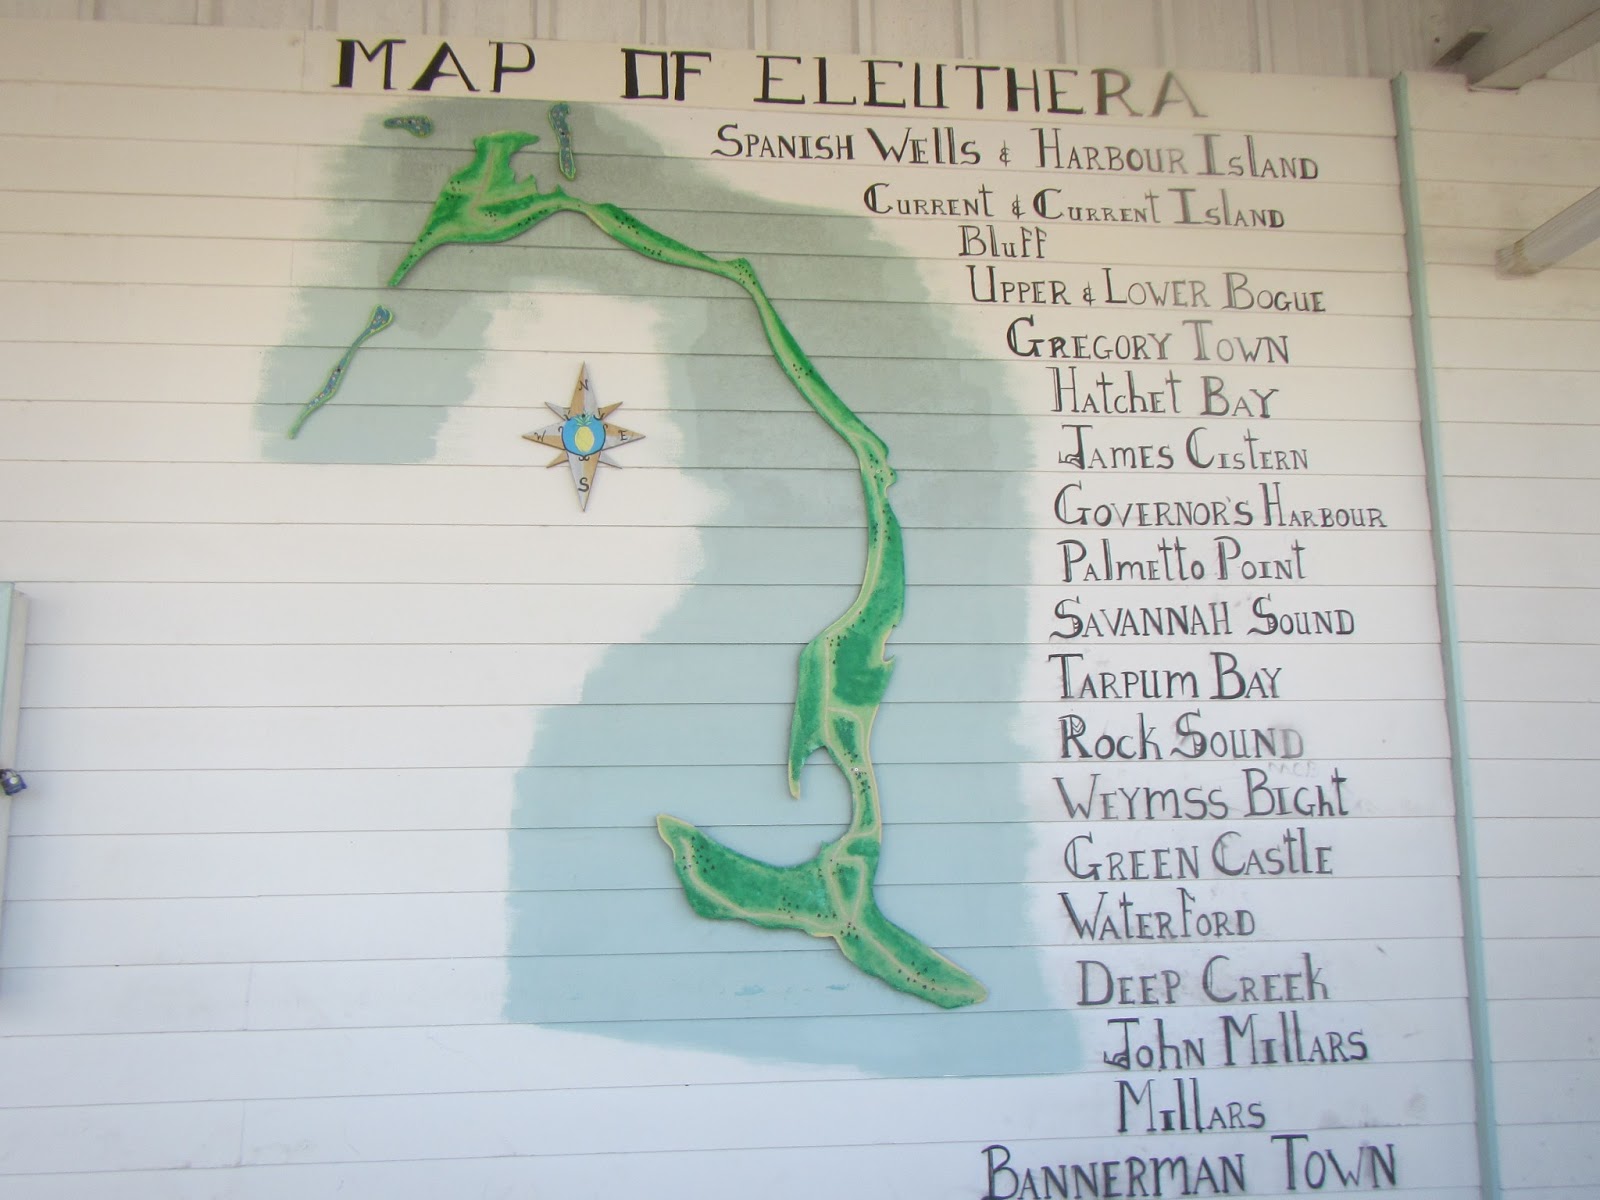 MAP OF ELEUTHERA
SPANISH WElls & HARBOUR ISlAND
CURRENt & CURRENt ISlAND
Bluff
UPPER & LOWER BOGUE
GREGORY TOWN
HAtchEt BAY
JAMES CIStERN
GOVERNOR'S HARBOUR
PAlmEtto POINt
SAVANNAH SOUND
TARPUm BAY
ROCk SOUND
MCB
WEYmSS BIGht
GREEN CAStlE
WAtERFORD
DEEP CREEk
JOhN MIllARS
MIllARS
BANNERMAN TOWN
N
W
E
S